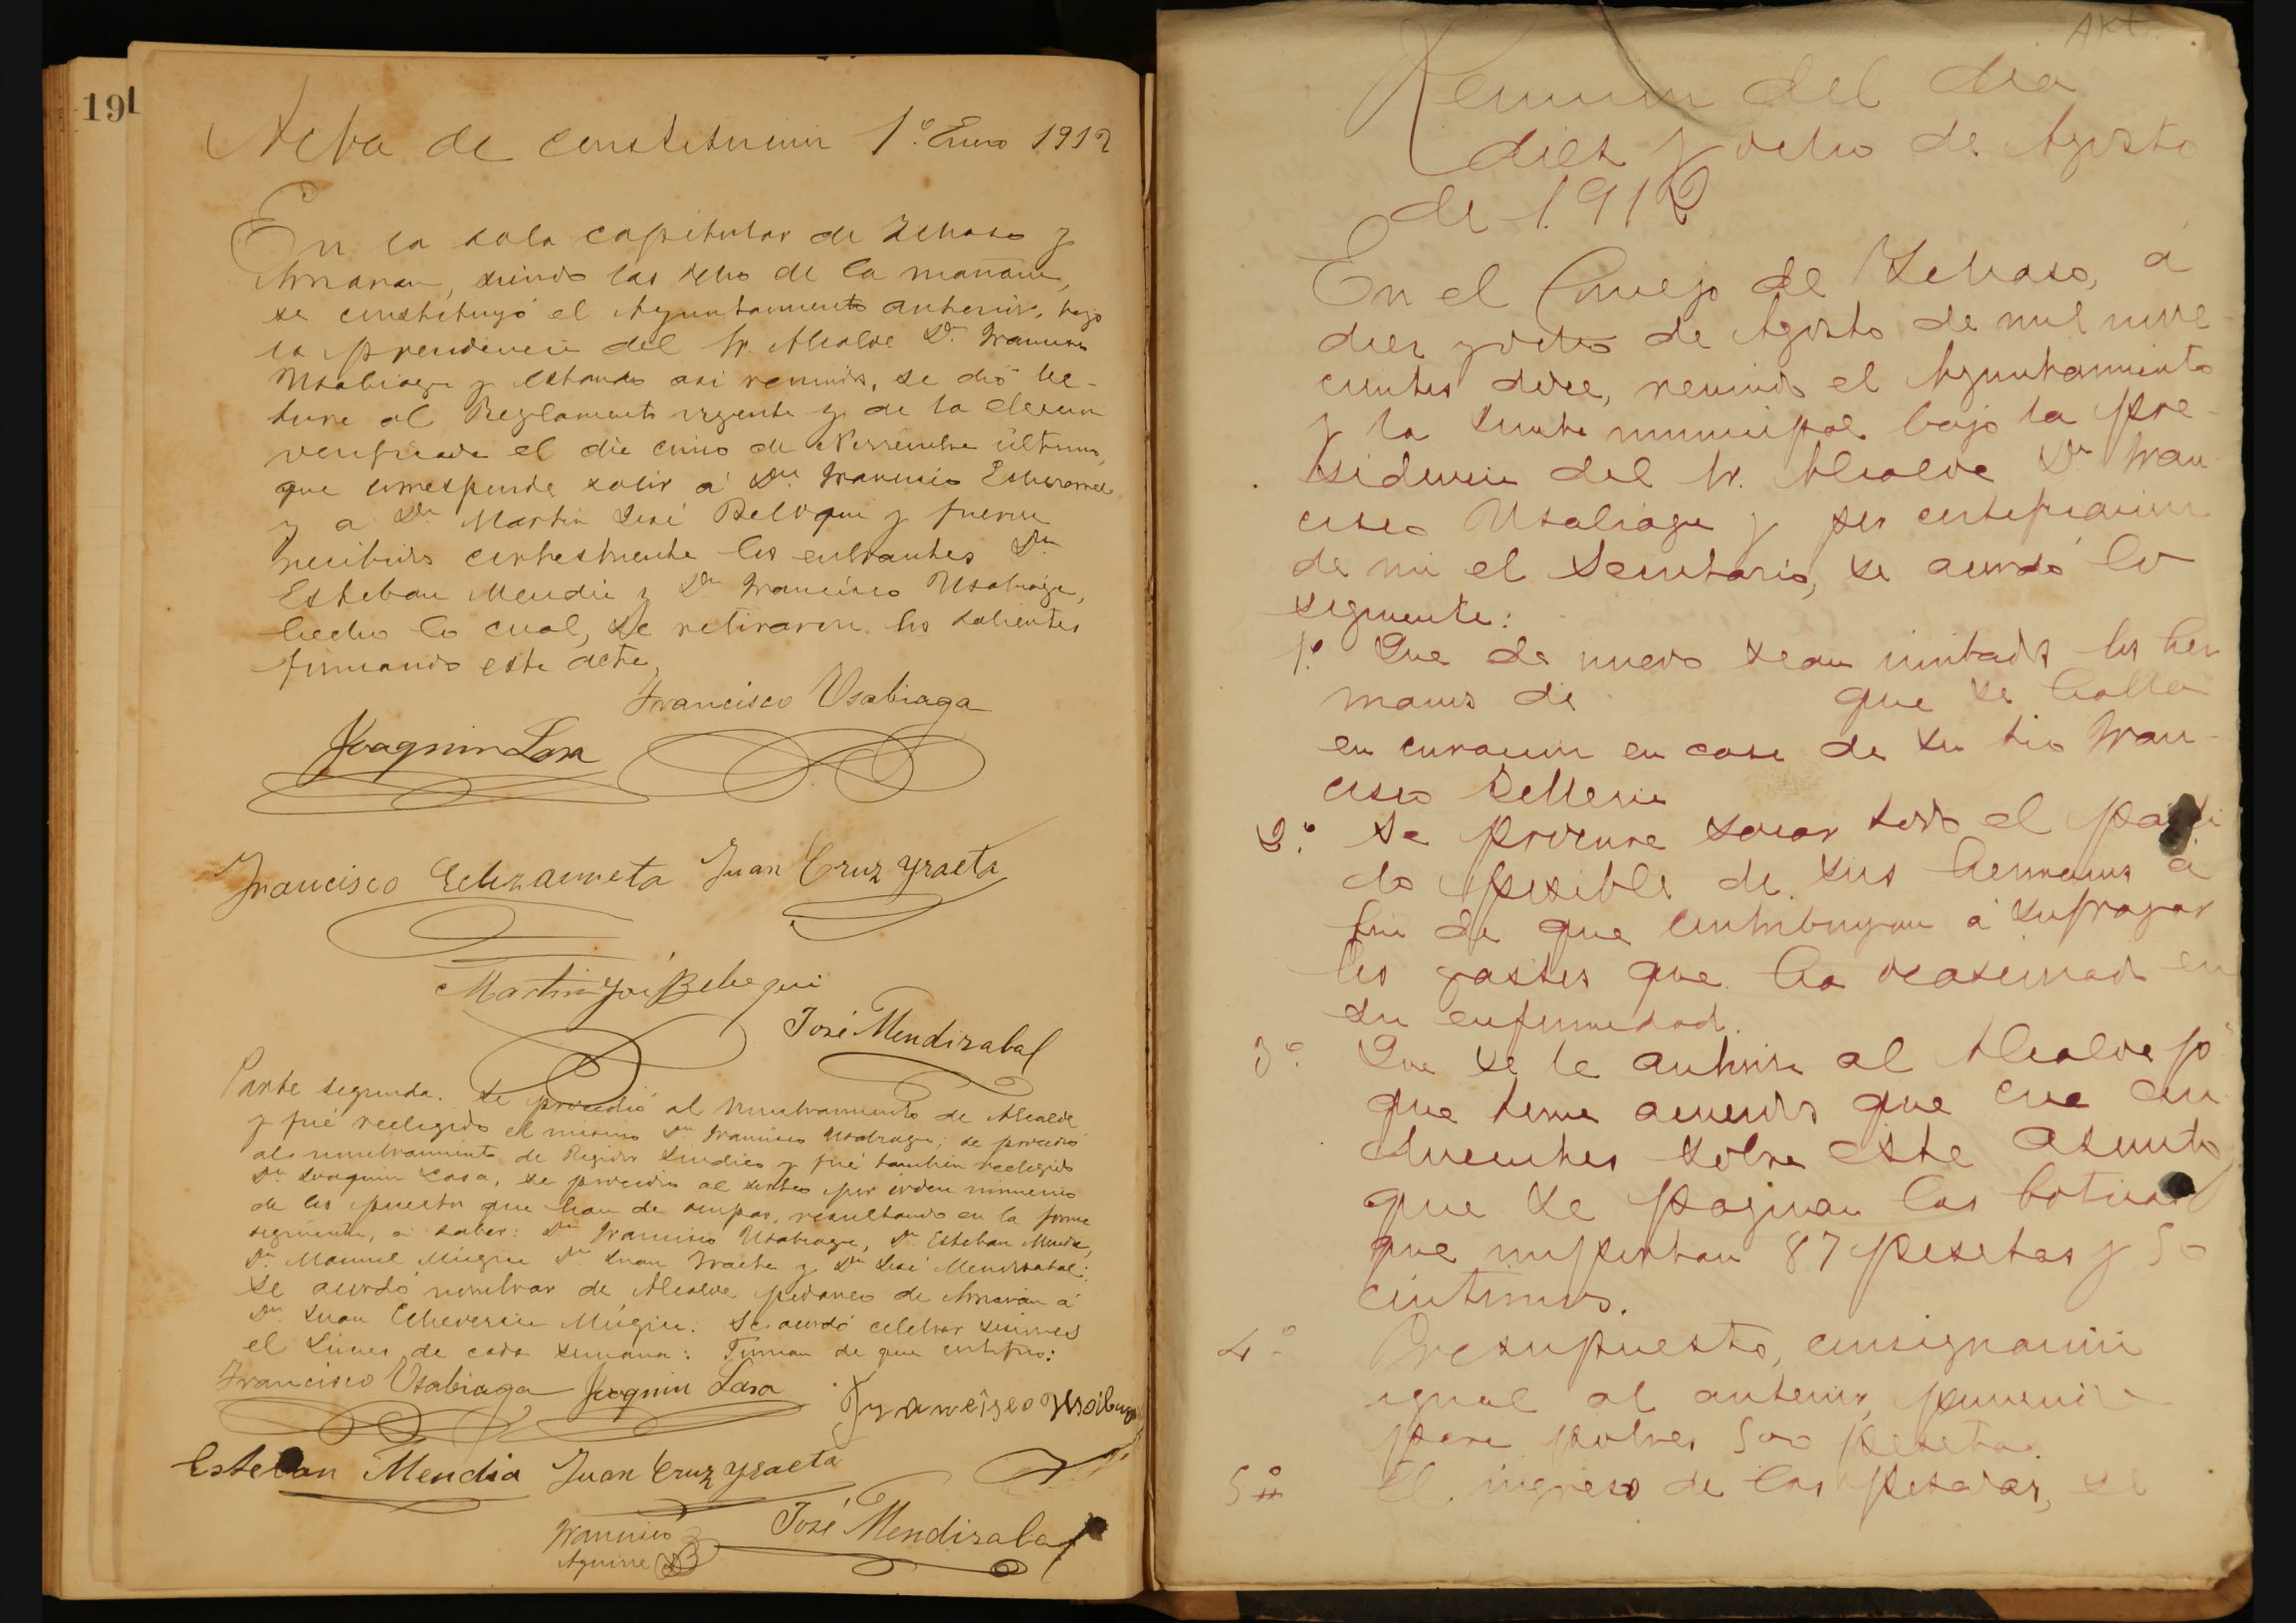 191
Acta de constitucion 1.º Enero 1912
En la sala capitular de Ichaso y
Arriaran, siendo las ocho de la mañana,
se constituyó el Ayuntamiento anterior, bajo
la presidencia del Sr. Alcalde Dn. Francisco
Usabiaga y estando asi reunidos, se dió lec-
tura al Reglamento vigente y de la eleccion
verificada el dia cinco de Noviembre último,
que corresponde salir á Dn. Francisco Echezarreta
y a Dn. Martin José Beloqui y fueron
recibidos cortesmente los entrantes Dn.
Esteban Mendia y Dn. Francisco Usabiaga,
hecho lo cual, se retiraron los salientes
firmando este acta,
Francisco Usabiaga
Joaquin Lasa
Francisco Echezarreta Juan Cruz Yraeta
Martin José Beloqui
José Mendizabal
Parte segunda. Se procedió al nombramiento de Alcalde
y fué reelegido el mismo Dn. Francisco Usabiaga; se procedió
al nombramiento de Regidor Sindico y fué tambien reelegido
Dn. Joaquin Lasa, se procedio al sorteo por orden numerico
de los puestos que han de ocupar, resultando en la forma
siguiente, á saber: Dn. Francisco Usabiaga, Dn. Esteban Mendia,
Dn. Manuel Múgica Dn. Juan Iraeta y Dn. José Mendizabal.
Se acordó nombrar de Alcalde pedaneo de Arriaran á
Dn. Juan Echeverria Múgica. Se acordó celebrar sesiones
el Lunes de cada semana: Firman de que certifico:
Francisco Usabiaga Joaquin Lasa Francisco
Esteban Mendia Juan Cruz Yraeta
Francisco José Mendizabal
Aguirre
Akt
Reunion del dia
diez y ocho de Agosto
de 1912
En el Concejo de Ichaso, á
diez y ocho de Agosto de mil nove-
cientos doce, reunido el Ayuntamiento
y la Junta municipal bajo la pre-
sidencia del Sr. Alcalde Dn. Fran-
cisco Usabiaga y por certificacion
de mi el Secretario, se acordó lo
siguiente:
1.º Que de nuevo sean invitados los her
manos de que se halla
en curacion en casa de su tio Fran-
cisco
2.º Se procure sacar todo el parti
do posible de sus hermanos á
fin de que contribuyan á sufragar
los gastos que ha ocasionado en
su enfermedad.
3.º Que se le autorice al Alcalde pª
que tome acuerdos que crea con
ducentes sobre este asunto
que se paguen las boticas
que importan 87 pesetas y 50
céntimos.
4.º Presupuesto, consignacion
igual al anterior,
para pobres 500 pesetas.
5.º El ingreso de las se